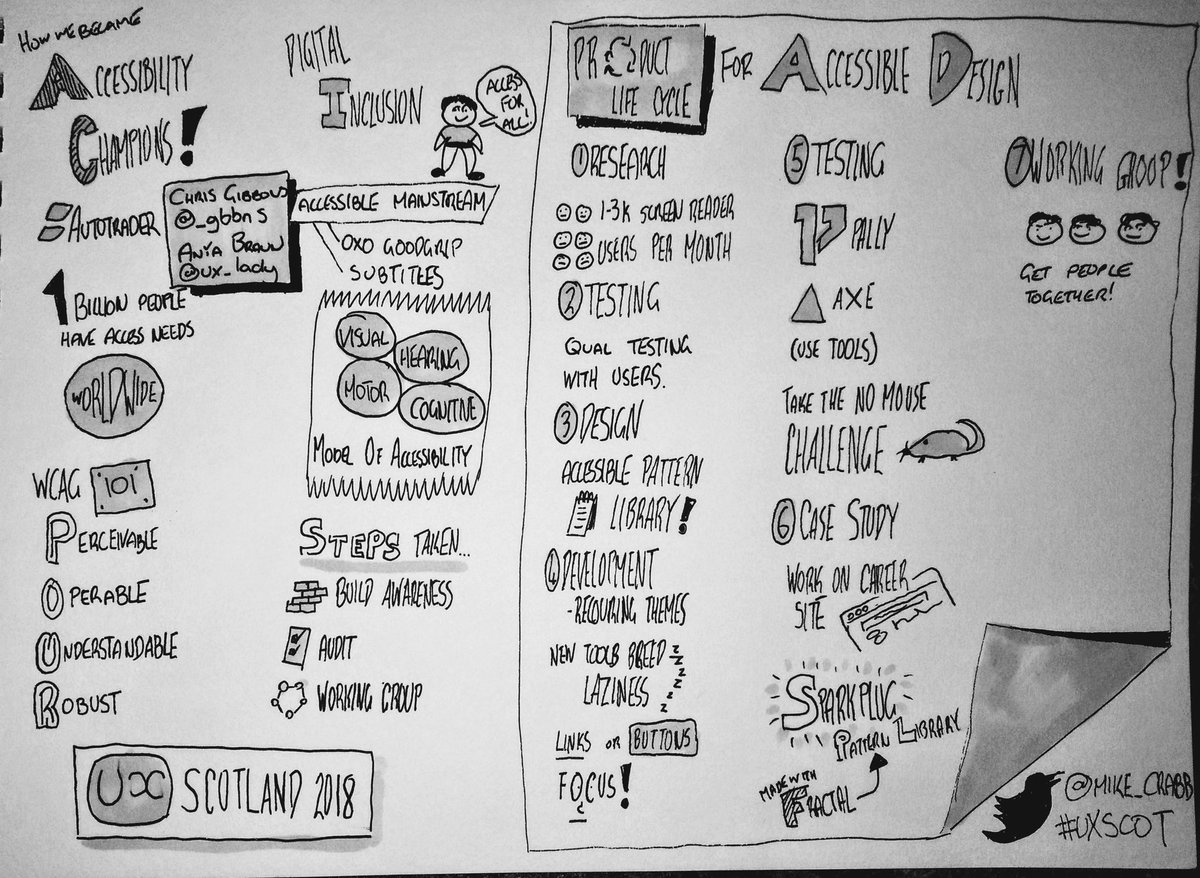 How we became
ACCESSIBILITY
CHAMPIONS!
AUTOTRADER
CHRIS GIBBONS
@_gbbns
ANIA BRAUN
@ux_lady
1 BILLION PEOPLE
HAVE ACCESS NEEDS
WORLDWIDE
WCAG 101
PERCEIVABLE
OPERABLE
UNDERSTANDABLE
ROBUST
UX SCOTLAND 2018
DIGITAL
INCLUSION
ACCESS
FOR
ALL!
ACCESSIBLE MAINSTREAM
OXO GOODGRIP
SUBTITLES
VISUAL
HEARING
MOTOR
COGNITIVE
MODEL OF ACCESSIBILITY
STEPS TAKEN...
BUILD AWARENESS
AUDIT
WORKING GROUP
PRODUCT
LIFE CYCLE
FOR ACCESSIBLE DESIGN
1 RESEARCH
1-3K SCREEN READER
USERS PER MONTH
2 TESTING
QUAL TESTING
WITH USERS.
3 DESIGN
ACCESSIBLE PATTERN
LIBRARY!
4 DEVELOPMENT
- RECQURING THEMES
NEW TOOLS BREED
LAZINESS
z z z z z
LINKS OR BUTTONS
FOCUS!
5 TESTING
PALLY
AXE
(USE TOOLS)
TAKE THE NO MOUSE
CHALLENGE
6 CASE STUDY
WORK ON CAREER
SITE
SPARKPLUG
PATTERN LIBRARY
MADE WITH
FRACTAL
7 WORKING GROOP!
GET PEOPLE
TOGETHER!
@MIKE_CRABB
#UXSCOT